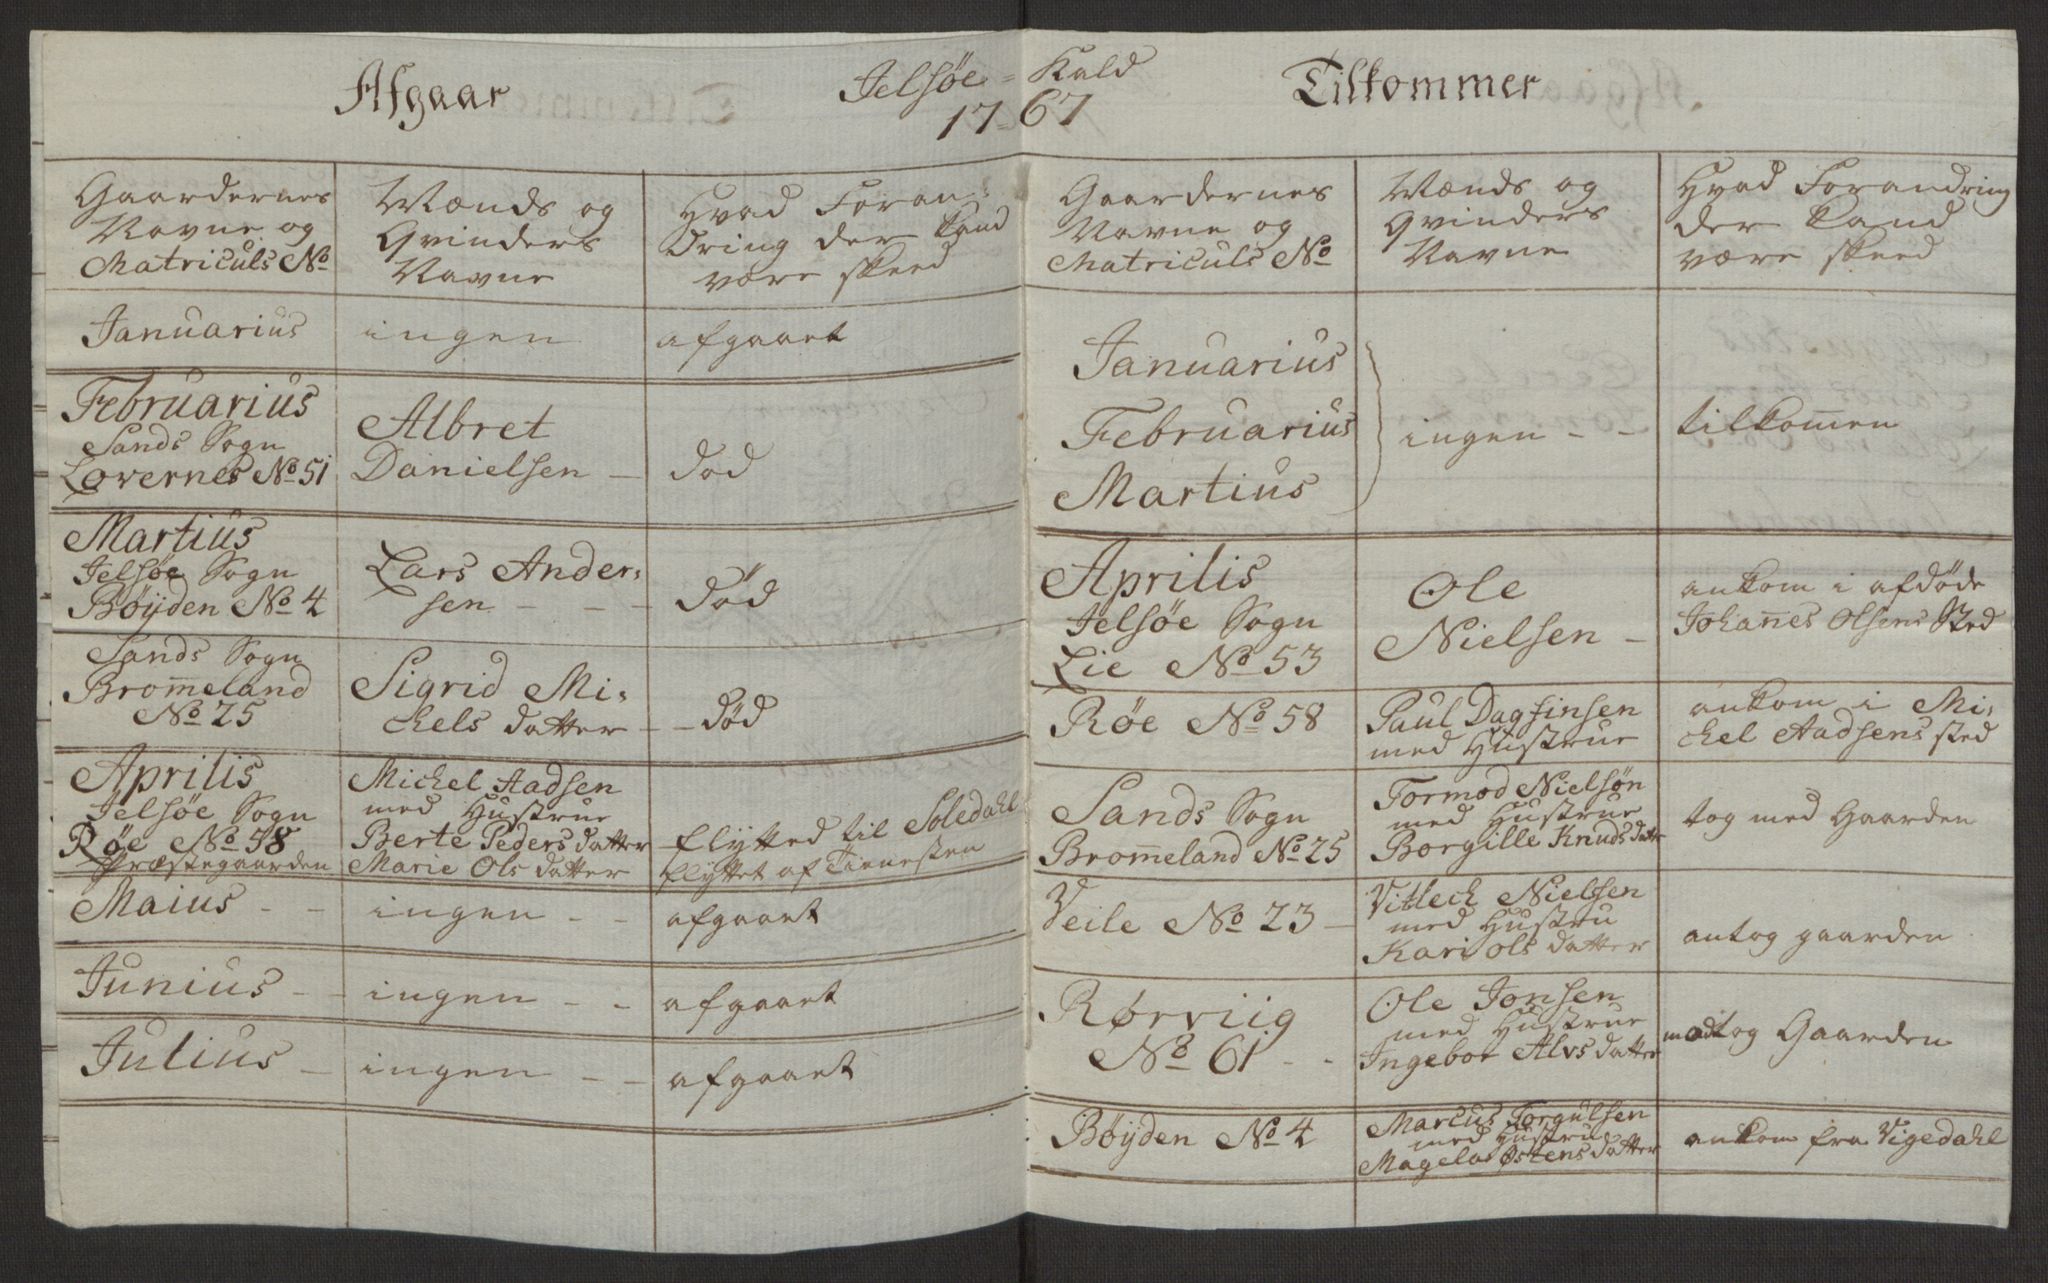 Afgaar
Jelsøe = Kald
17=67
Tilkommer
Gaardernes
Navne og
Matriculs No
Mænds og
Qvinders
Navne
Hvad Foran=
dring der kand
være skeed
Januarius
ingen
afgaaet
Februarius
Sands Sogn
Lovernes No 51
Albret
Danielsen –
død
Martius
Jelsøe Sogn
Bøyden No 4
Lars Ander=
sen – – –
død
Sands Sogn
Brom̅eland
No 25
Sigrid Mi=
chels datter –
– død
Aprilis
Jelsøe Sogn
Røe No 58
Præstegaarden
Michel Aadsen
med Hustrue
Berte Peders datter
Marie Ols datter
flytted til Soledahl
flyttet af Tienesten
Maius – –
ingen – –
afgaaet
Junius – –
ingen – –
afgaaet
Julius –
ingen – –
afgaaet
Gaardernes
Navne og
Matriculs No
Mænds og
Qvinders
Navne
Hvad Forandring
der kand
være skeed
Januarius
Februarius
Martius
ingen – –
tilkom̅en
Aprilis
Jelsøe Sogn
Lie No 53
Ole
Nielsen –
ankom i afdøde
Johan̅es Olsens Sted
Røe No 58
Paul Dagfinsen
med Hustrue
ankom i Mi=
chel Aadsens sted
Sands Sogn
Brom̅eland No 25
Tormod Nielsøn
med Hustrue
Borgille Knuds datter
tog med Gaarden
Veile No 23 –
Vitlech Nielsen
med Hustru
Kari Ols datter
antog gaarden
Rørviig
No 61 – –
Ole Jonsen
med Hustrue
Ingebor Alvs datter
modtog Gaarden
Bøyden No 4
Marcus Torgulsen
med Hustru
Magela Østens datter
ankom fra Vigedahl